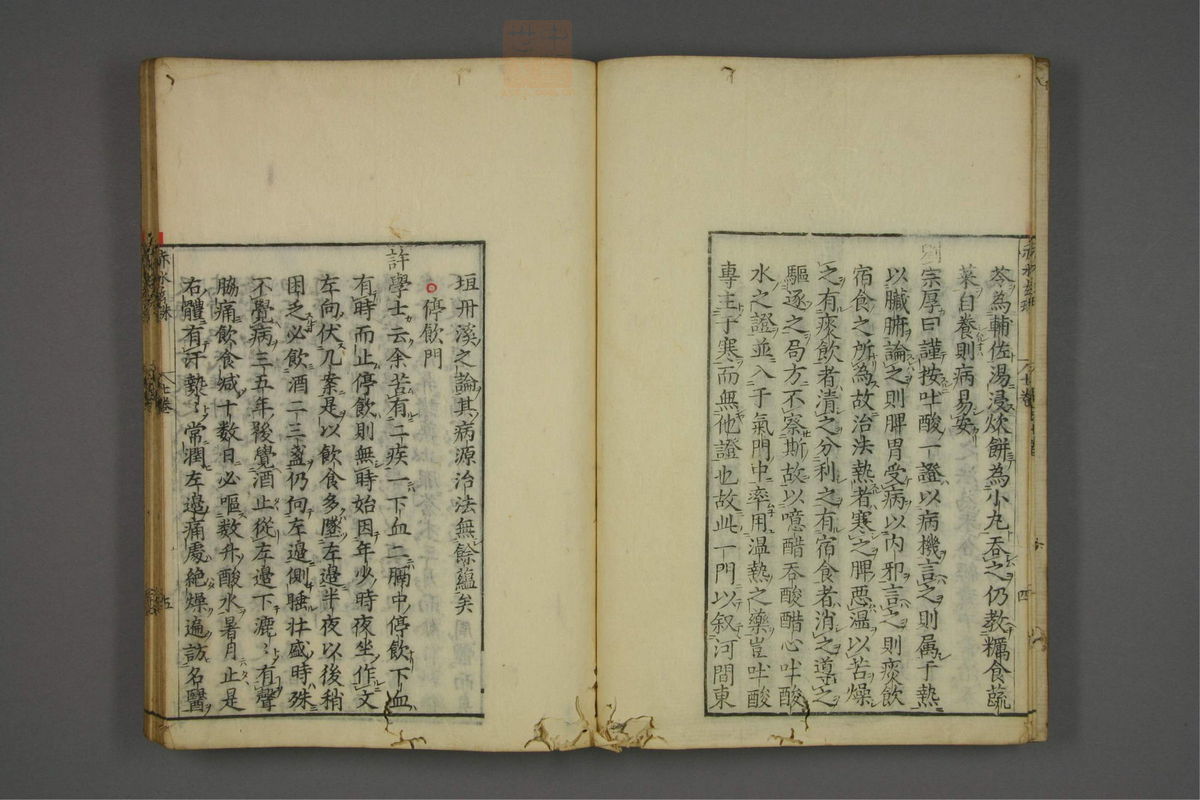 苓為輔佐湯浸炊餅為小丸吞之仍教糲食蔬
菜自養則病易安
劉宗厚曰謹按吐酸一證以病機言之則属于熱
以臓腑論之則脾胃受病以内邪言之則痰飲
宿食之所為故治法熱者寒之脾悪温以苦燥
之有痰飲者清之分利之有宿食者消之導之
驅逐之局方不察斯故以噫醋吞酸醋心吐酸
水之證並入于氣門中率用温熱之藥豈吐酸
專主于寒而無他證也故此一門以叙河間東
垣丹溪之論其病源治法無餘蘊矣
停飲門
許學士云余苦有二疾一下血二膈中停飲下血
有時而止停飲則無時始因年少時夜坐作文
左向伏几案是以飲食多墜左邉半夜以後稍
困乏必飲酒二三盞仍向左邉側睡壮盛時殊
不覺病三五年後覺酒止從左邉下漉〻有聲
脇痛飲食减十数日必嘔数升酸水暑月止是
右體有汗漐〻常潤左邉痛處絶燥遍訪名醫